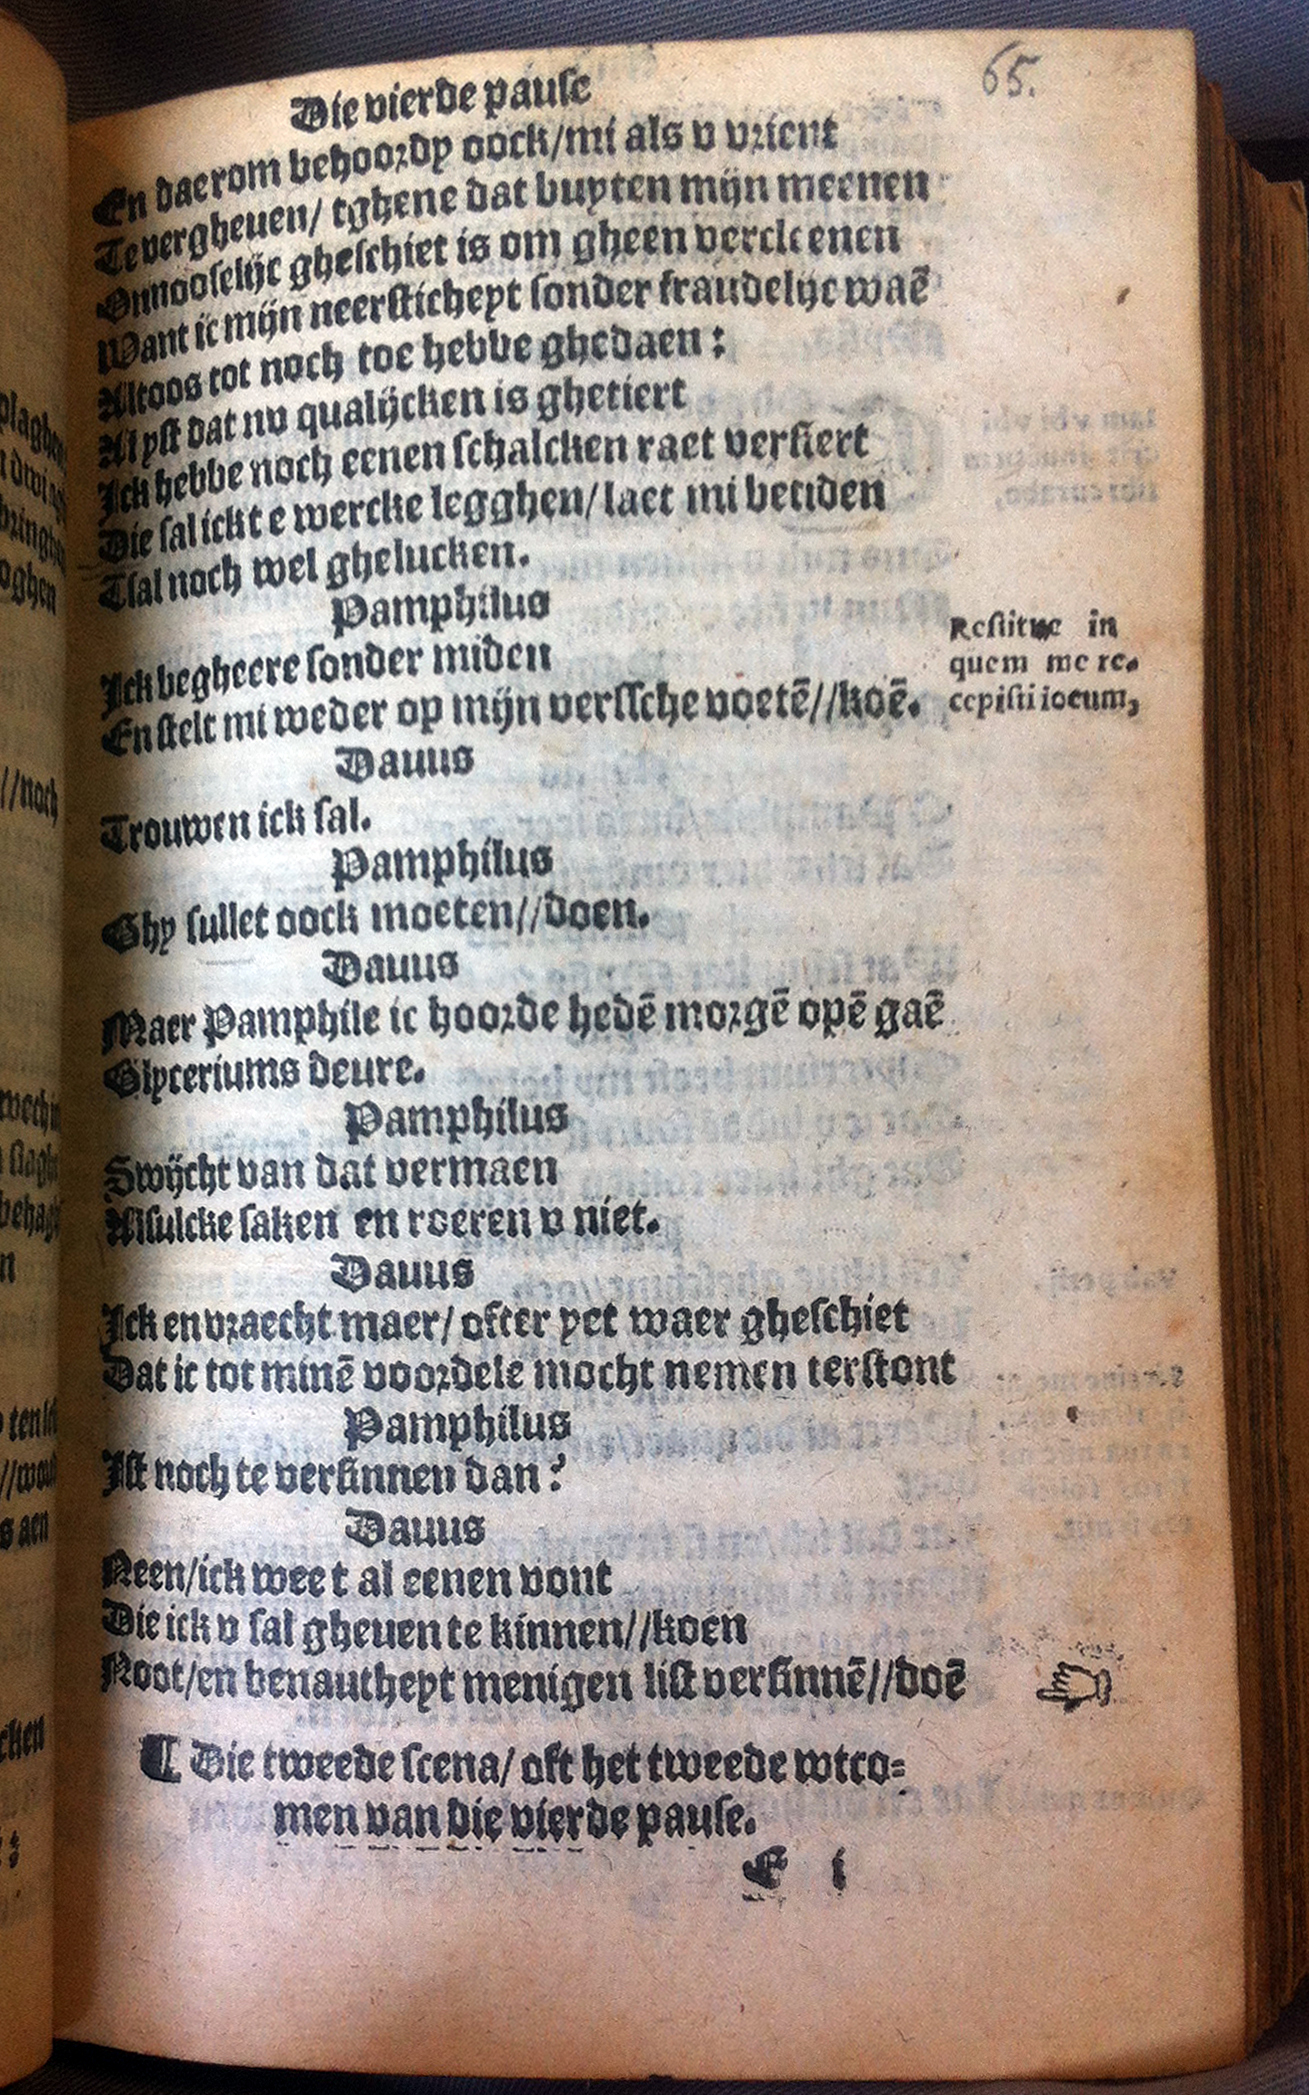 65.
Die vierde pause
En daerom behoordy oock/mi als v vrient
Te vergheuen/ tghene dat buyten mijn meenen
Onnooselijc gheschiet is om gheen vercleenen
Want ic mijn neersticheyt sonder fraudelijc waē
Altoos tot noch toe hebbe ghedaen:
Al yst dat nv qualijcken is ghetiert
Ick hebbe noch eenen schalcken raet versiert
Die sal ickt e wercke legghen/laet mi betiden
Tsal noch wel ghelucken.
Pamphilus
Ick begheere sonder miden
En stelt mi weder op mijn verssche voetē//koē.
Restitue in
quem me re-
cepisti locum,
Dauus
Trouwen ick sal.
Pamphilus
Ghy sullet oock moeten//doen.
Dauus
Maer Pamphile ic hoorde hedē morgē opē gaē
Glyceriums deure.
Pamphilus
Swijcht van dat vermaen
Alsulcke saken en roeren v niet.
Dauus
Ick en vraecht maer/ ofter yet waer gheschiet
Dat ic tot minē voordele mocht nemen terstont
Pamphilus
Ist noch te versinnen dan?
Dauus
Neen/ick weet al eenen vont
Die ick v sal gheuen te kinnen//koen
Noot/en benautheyt menigen list versinnē//doē
¶ Die tweede scena/ oft het tweede wtco=
men van die vierde pause.